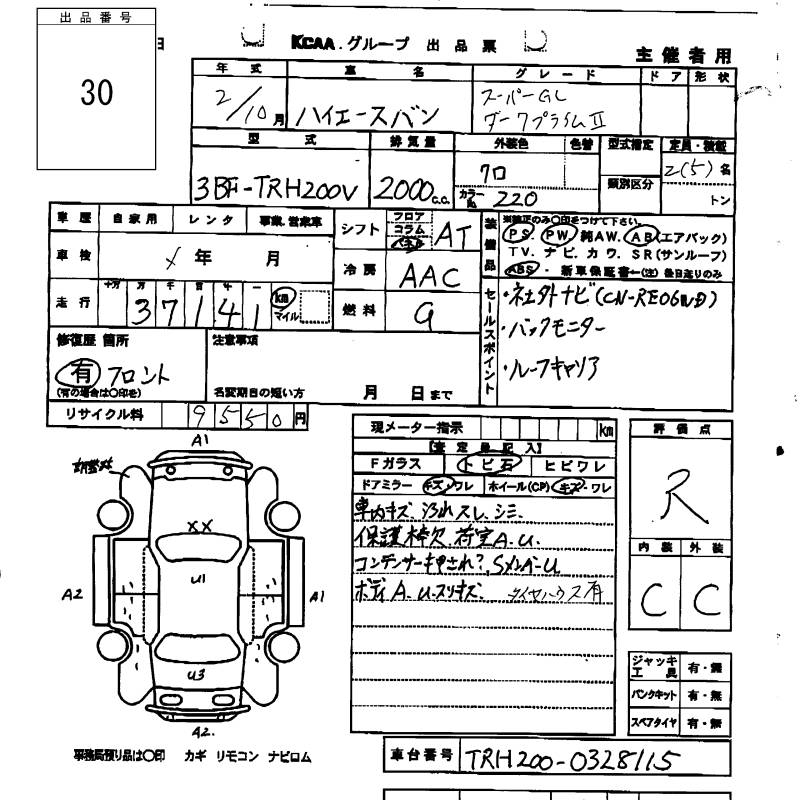 出品番号
30
KCAA.グループ 出品票
主催者用
年式 車名 グレード ドア 形状
2/10月 ハイエースバン スーパーGL
ダークプライムⅡ
型式 排気量 外装色 色替 型式指定 定員・積載
3BF-TRH200V 2000c.c. クロ 類別区分 2(5)名
カラーNo. 220 トン
車歴 自家用 レンタ 事業.営業車 シフト フロア コラム パネル AT
装備品 ※純正のみ○印をつけて下さい。
PS. PW. 純AW. AB(エアバック)
TV. ナビ. カワ. SR(サンルーフ)
ABS・新車保証書←(注)後日送りのみ
車検 年 月 冷房 AAC
走行 十万 万 千 百 十 一 km マイル
37141 燃料 G
セールスポイント ・社外ナビ(CN-RE06WD)
・バックモニター
・ルーフキャリア
修復歴 箇所 注意事項
有 フロント
(有の場合は○印を) 名変期日の短い方 月 日まで
リサイクル料 9550円
現メーター指示 km
【査定員記入】
Fガラス トビ石 ヒビワレ
ドアミラー キズ・ワレ ホイール(CP) キズ・ワレ
車内キズ、汚れスレ、シミ、
保護棒欠、荷室A.U.
コンデンサー押され?、Sメンバ-U
ボディA.U.スリキズ. タイヤハウス有
評価点
R
内装 外装
C C
A1
調整跡
XX
A2 U1 A1
U3
A2.
ジャッキ工具 有・無
パンクキット 有・無
スペアタイヤ 有・無
事務局預り品は○印 カギ リモコン ナビロム
車台番号 TRH200-0328115